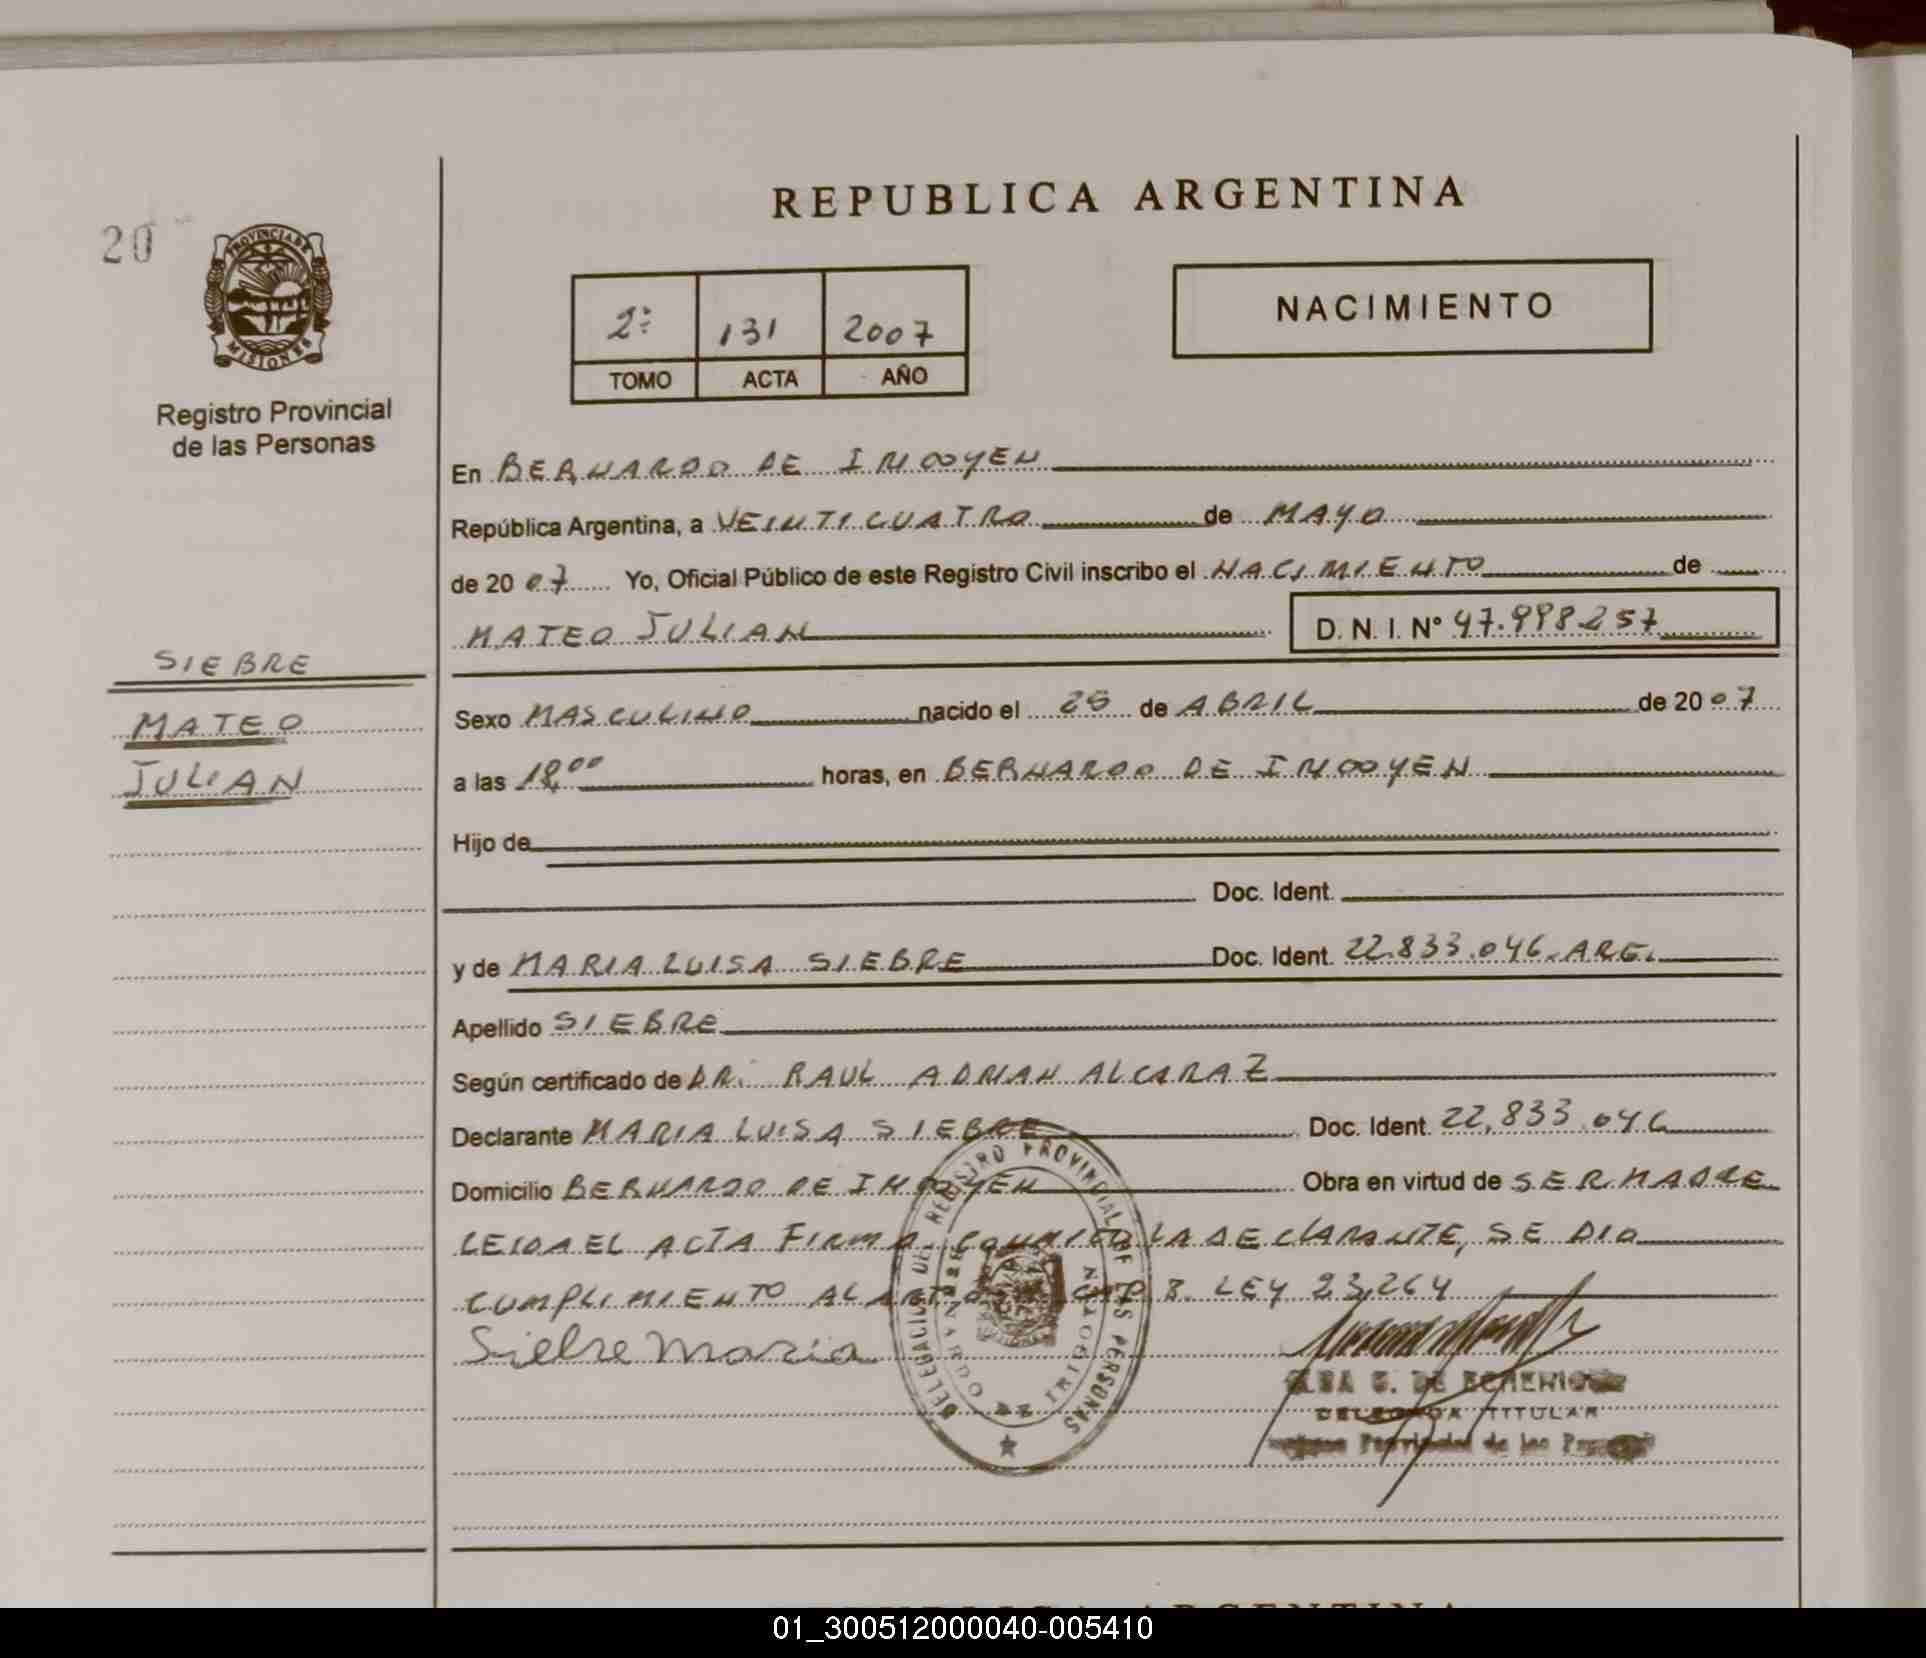 REPUBLICA ARGENTINA
20
PROVINCIA DE
MISIONES
Registro Provincial
de las Personas
2º 131 2007
TOMO ACTA AÑO
NACIMIENTO
En BERNARDO DE IRIGOYEN
República Argentina, a VEINTICUATRO de MAYO
de 2007 Yo, Oficial Público de este Registro Civil inscribo el NACIMIENTO de
MATEO JULIAN D. N. I. Nº 47.998.257
SIEBRE
MATEO
JULIAN
Sexo MASCULINO nacido el 25 de ABRIL de 2007
a las 18,00 horas, en BERNARDO DE IRIGOYEN
Hijo de
Doc. Ident.
y de MARIA LUISA SIEBRE Doc. Ident. 22.833.046. ARG.
Apellido SIEBRE
Según certificado de DR. RAUL ADRIAN ALCARAZ
Declarante MARIA LUISA SIEBRE Doc. Ident. 22.833.046
Domicilio BERNARDO DE IRIGOYEN Obra en virtud de SER MADRE
LEIDA EL ACTA FIRMA CONMIGO LA DECLARANTE, SE DIO
CUMPLIMIENTO AL LEY 23.264
Siebre Maria
DELEGACION DEL REGISTRO PROVINCIAL DE LAS PERSONAS
DELEGADA TITULAR
Provincial de las
REPUBLICA ARGENTINA
01_300512000040-005410